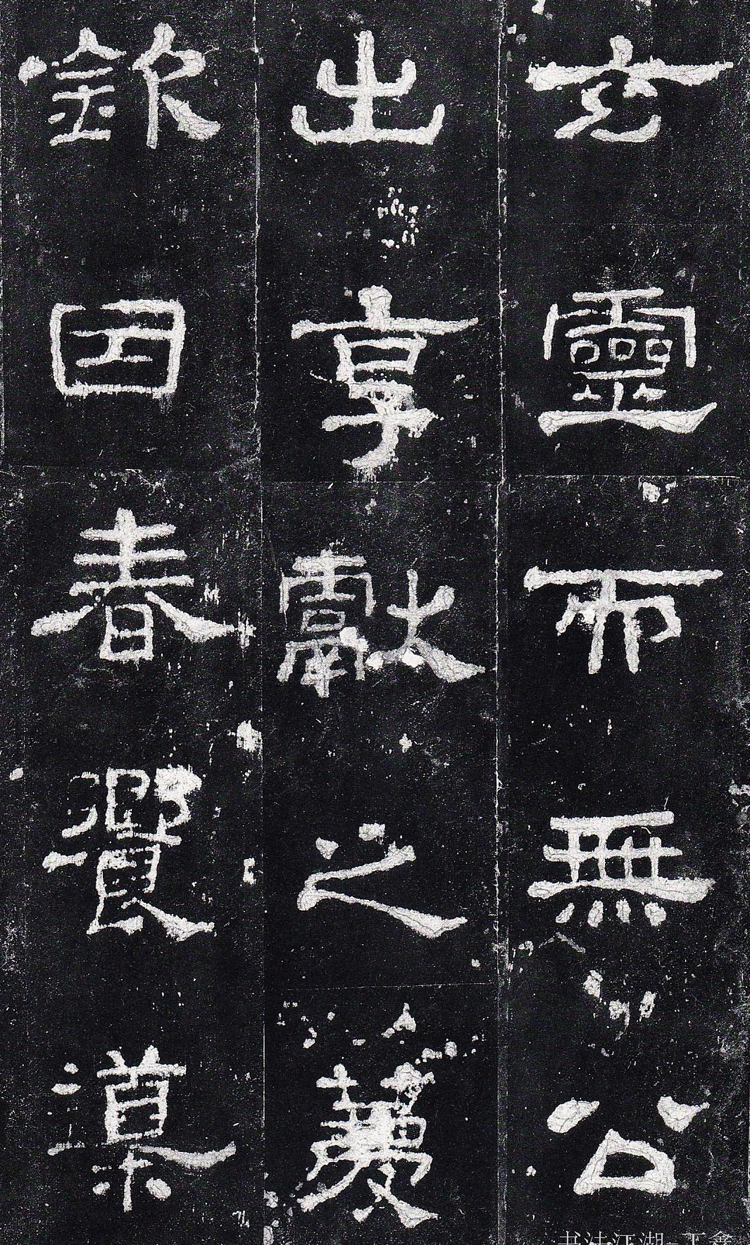 玄靈而無公
出享獻之薦
欽因春饗導
书法江湖